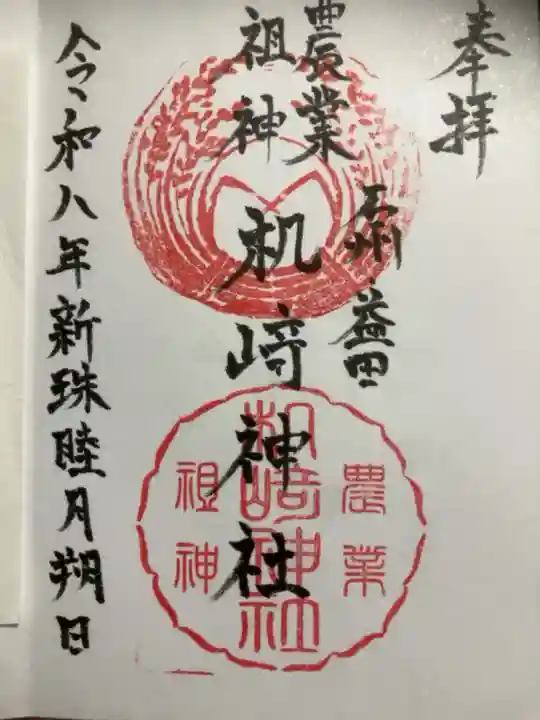 奉拝
石州 益田
農業
祖神
机崎神社
令和八年新珠睦月朔日
農業
机崎神社
祖神